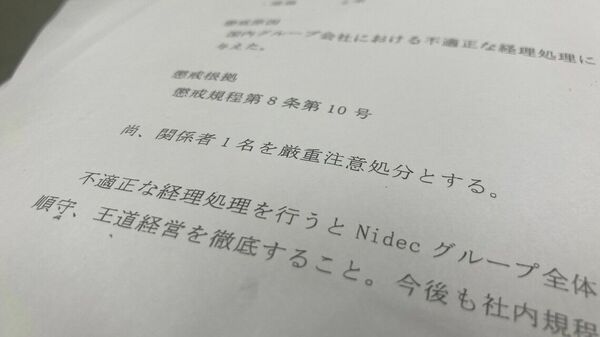 懲戒原因
国内グループ会社における不適正な経理処理に
与えた。
懲戒根拠
懲戒規程第8条第10号
尚、関係者1名を厳重注意処分とする。
不適正な経理処理を行うとNidecグループ全体
順守、王道経営を徹底すること。今後も社内規程